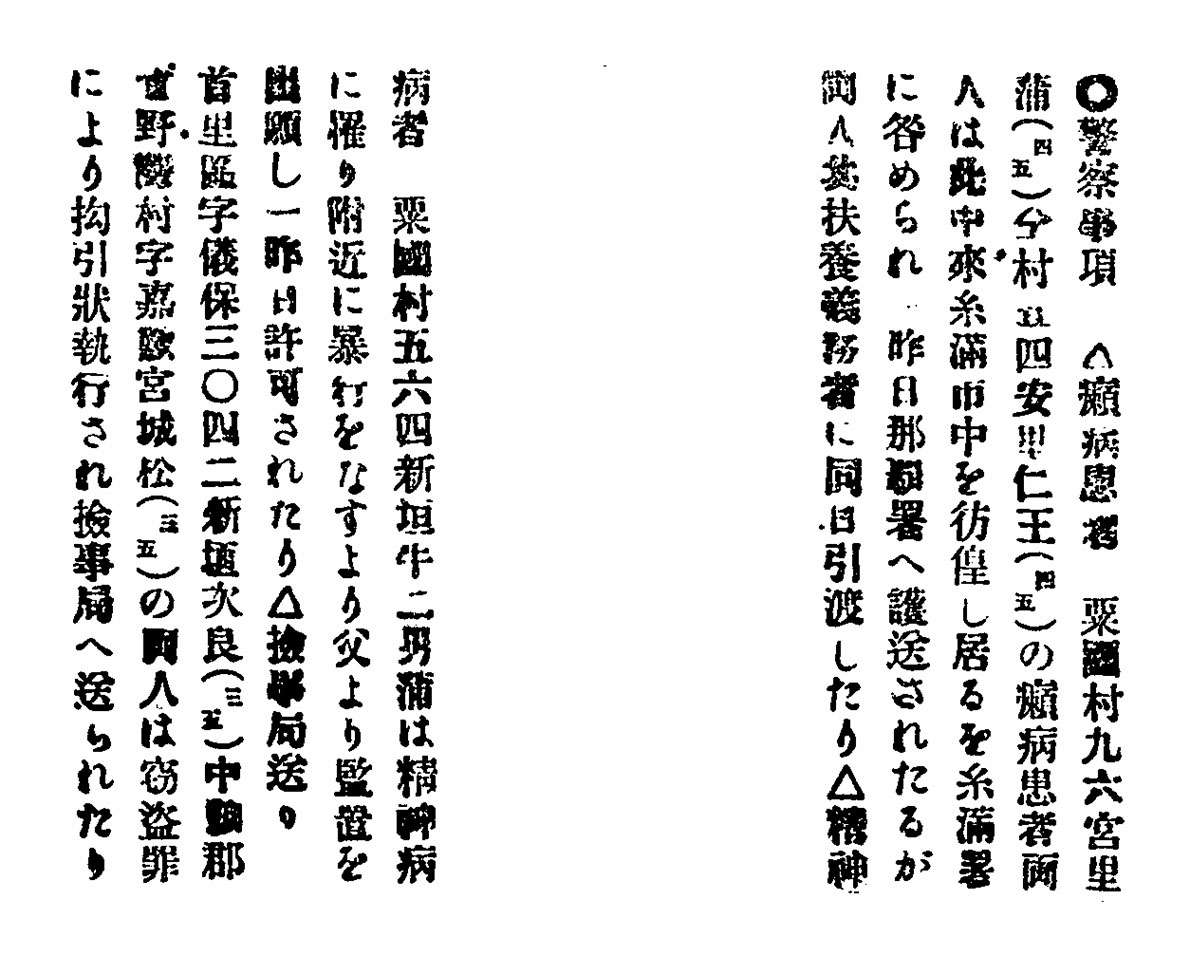 〇警察事項　△癩病患者　粟國村九六宮里
蒲（四五）仝村五四安里仁王（四五）の癩病患者両
人は此中來糸滿市中を彷徨し居るを糸滿署
に咎められ　昨日那覇署へ護送されたるが
両人共扶養義務者に同日引渡したり△精神
病者　粟國村五六四新垣牛二男蒲は精神病
に罹り附近に暴行をなすより父より監置を
出願し一昨日許可されたり△撿事局送り
首里區字儀保三〇四二新垣次良（三五）中頭郡
宜野灣村字嘉数宮城松（三五）の両人は窃盗罪
により拘引狀執行され撿事局へ送られたり